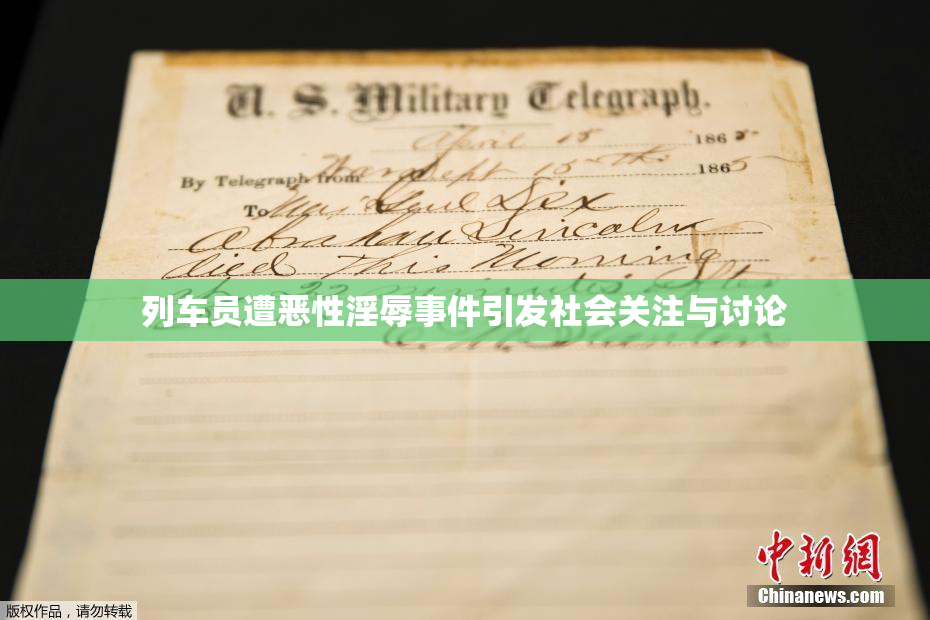 U. S. Military Telegraph.
April 15 1865
By Telegraph from War Dept 15th 1865
To Maj Genl Dix
Abraham Lincoln
died This Morning
22 minutes after
列车员遭恶性淫辱事件引发社会关注与讨论
E. M. Stanton
中新网
Chinanews.com
版权作品，请勿转载